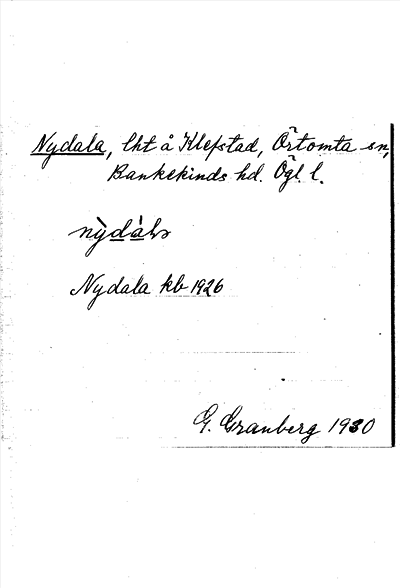 Nydala, lht å Klefstad, Örtomta sn,
Bankekinds hd. Ögl. l.
Nydala kb 1926
G. Granberg 1930